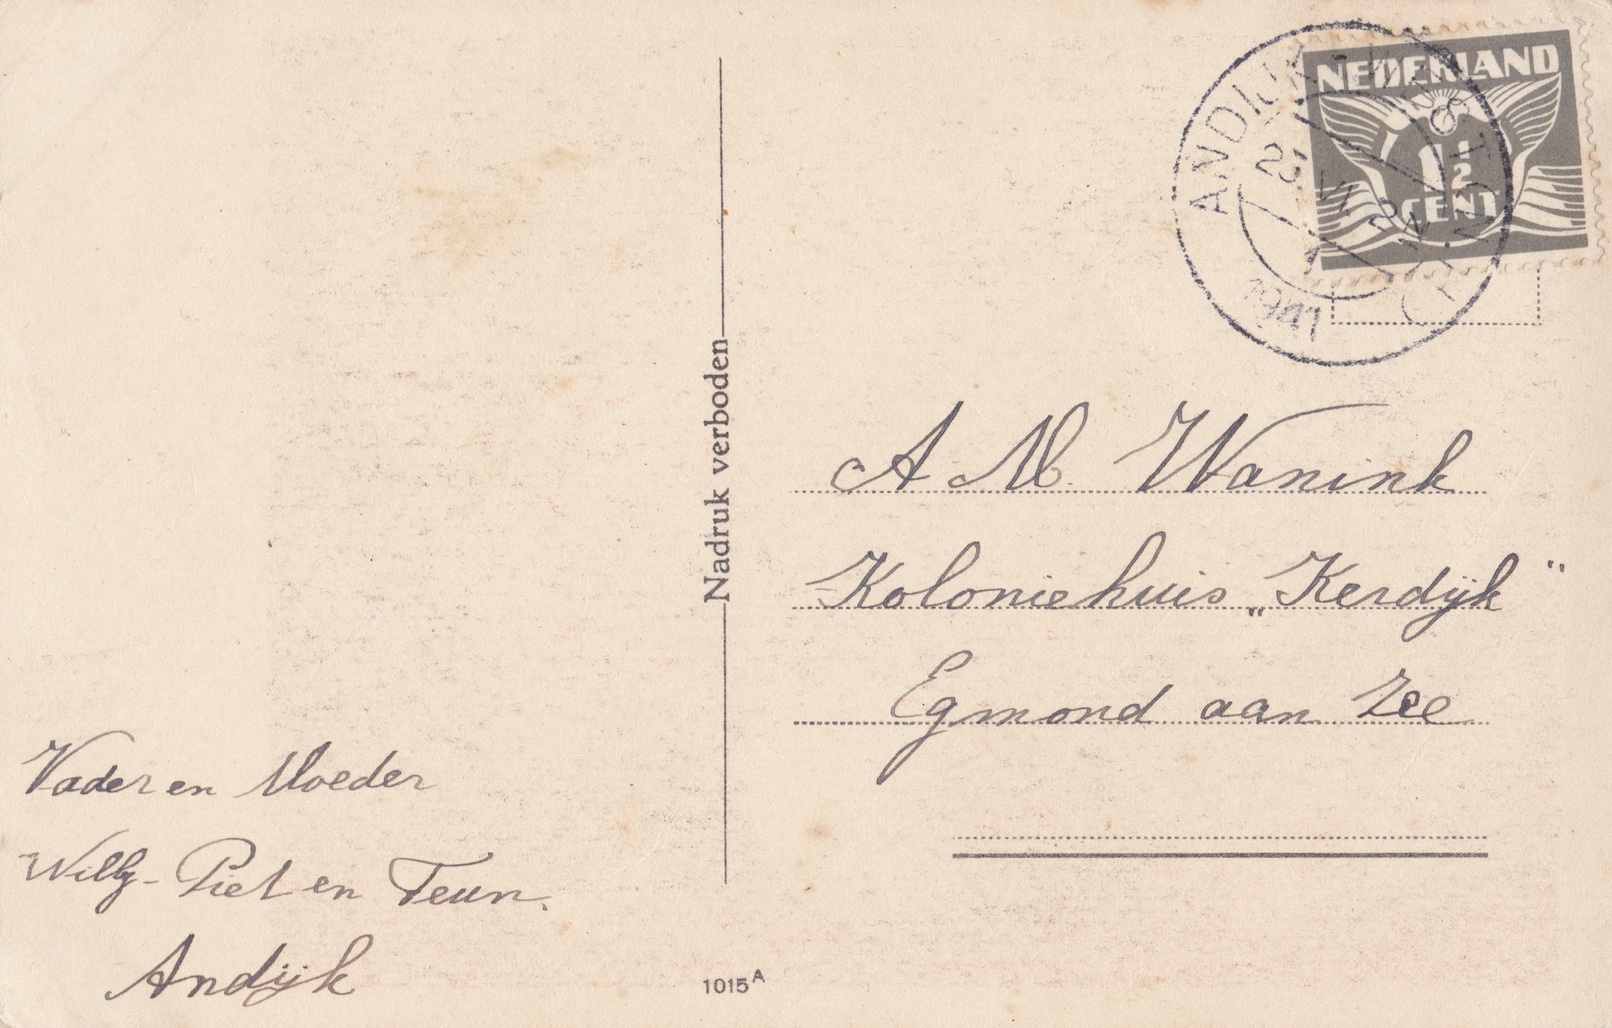 NEDERLAND
1½
CENT
ANDIJK-WEST
1941
Nadruk verboden
A M. Wanink
Koloniehuis „Kerdijk“
Egmond aan Zee
Vader en Moeder
Willy - Piet en Teun.
Andijk
1015A